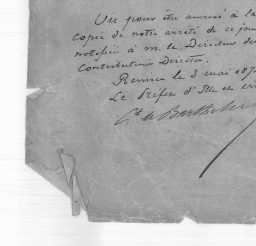 Vu pour être annexé à la
copie de notre arrêté de ce jour
notifiée à M. le Directeur des
Contributions Directes.
Rennes le 3 mai 187
Le Préfet d'Ille et